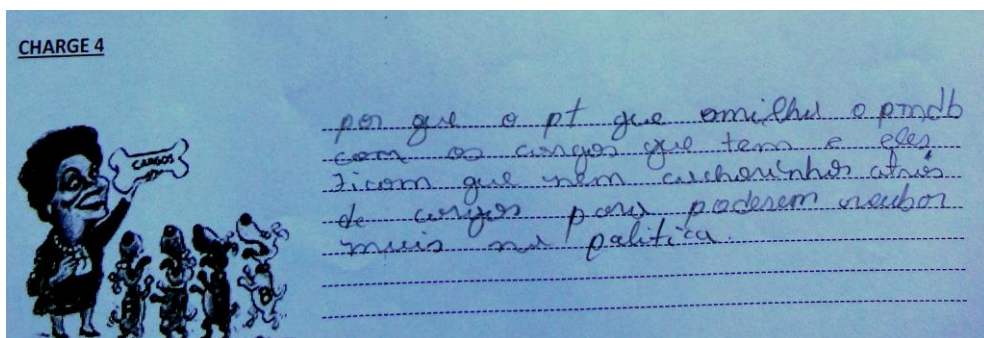 CHARGE 4
CARGOS
por que o pt que omilha o pmdb
com os cargos que tem e eles
ficam que nem cachorinhos atrás
de cargos para poderem roubar
mais na politica.